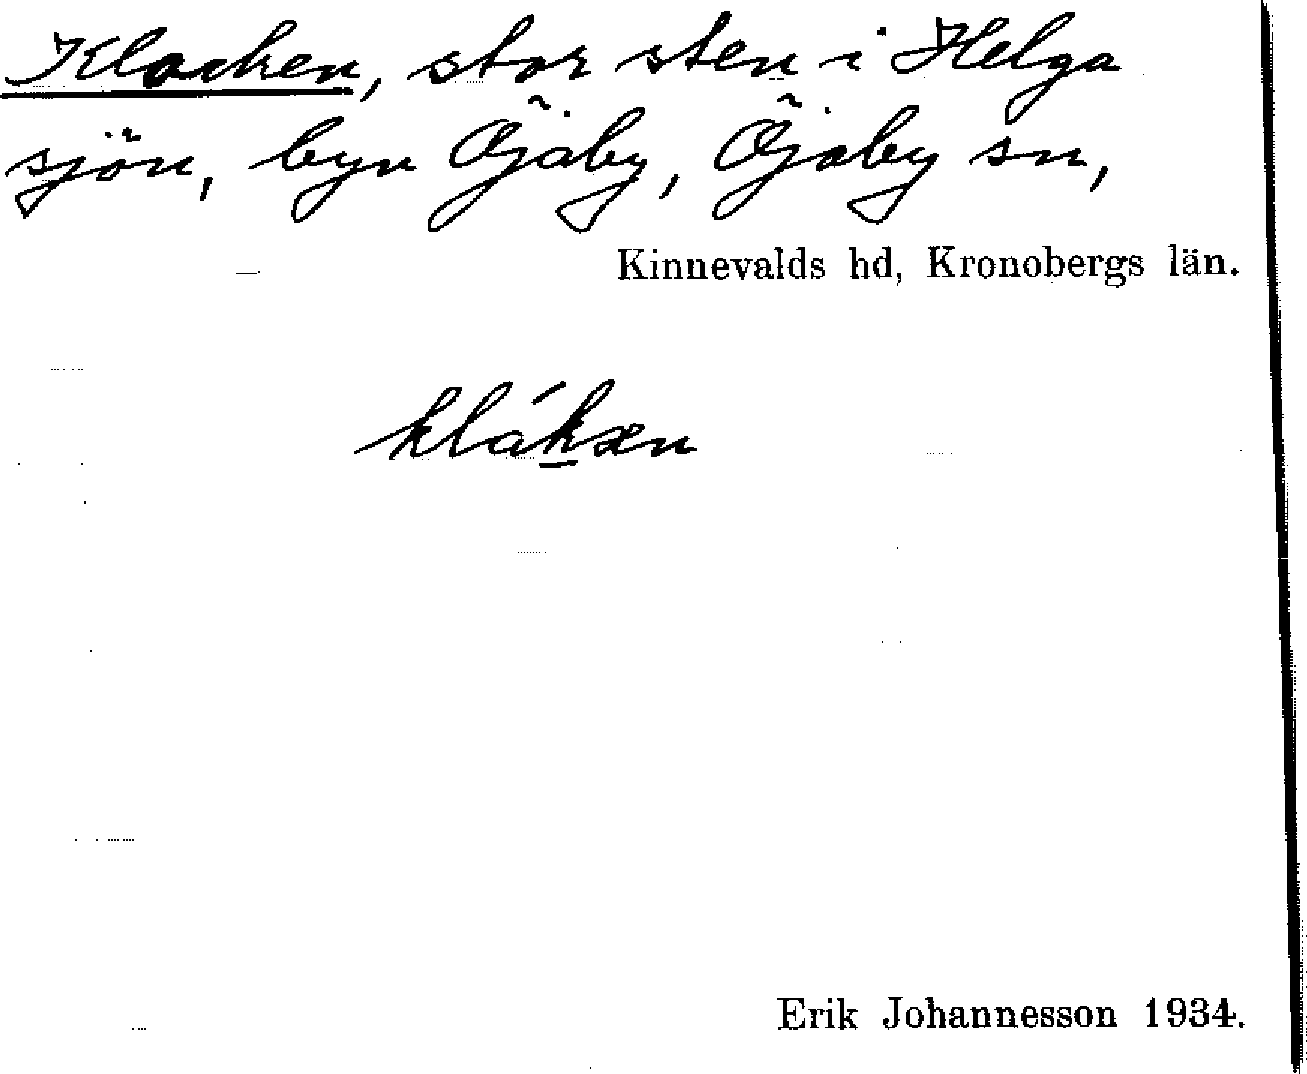 Klocken, stor sten i Helga
sjön, byn Öjaby, Öjaby sn,
Kinnevalds hd, Kronobergs län.
klák̲æn
Erik Johannesson 1934.